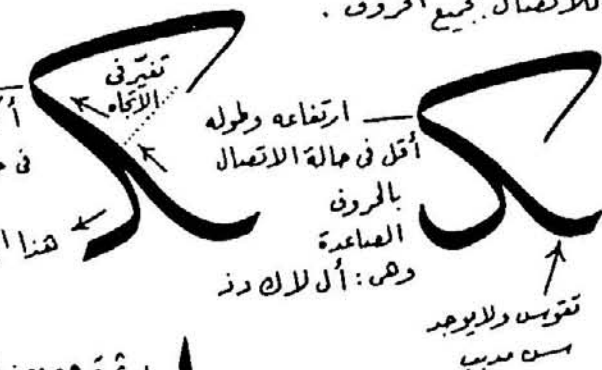 للاتصال بجميع الحروف .
تغيّر فى
الاتجاه
ارتفاعه وطوله
أقل فى حالة الاتصال
بالحروف
الصاعدة
وهى : أ ل لا ك د ذ
هذا
تقوس ولا يوجد
سن مدبب